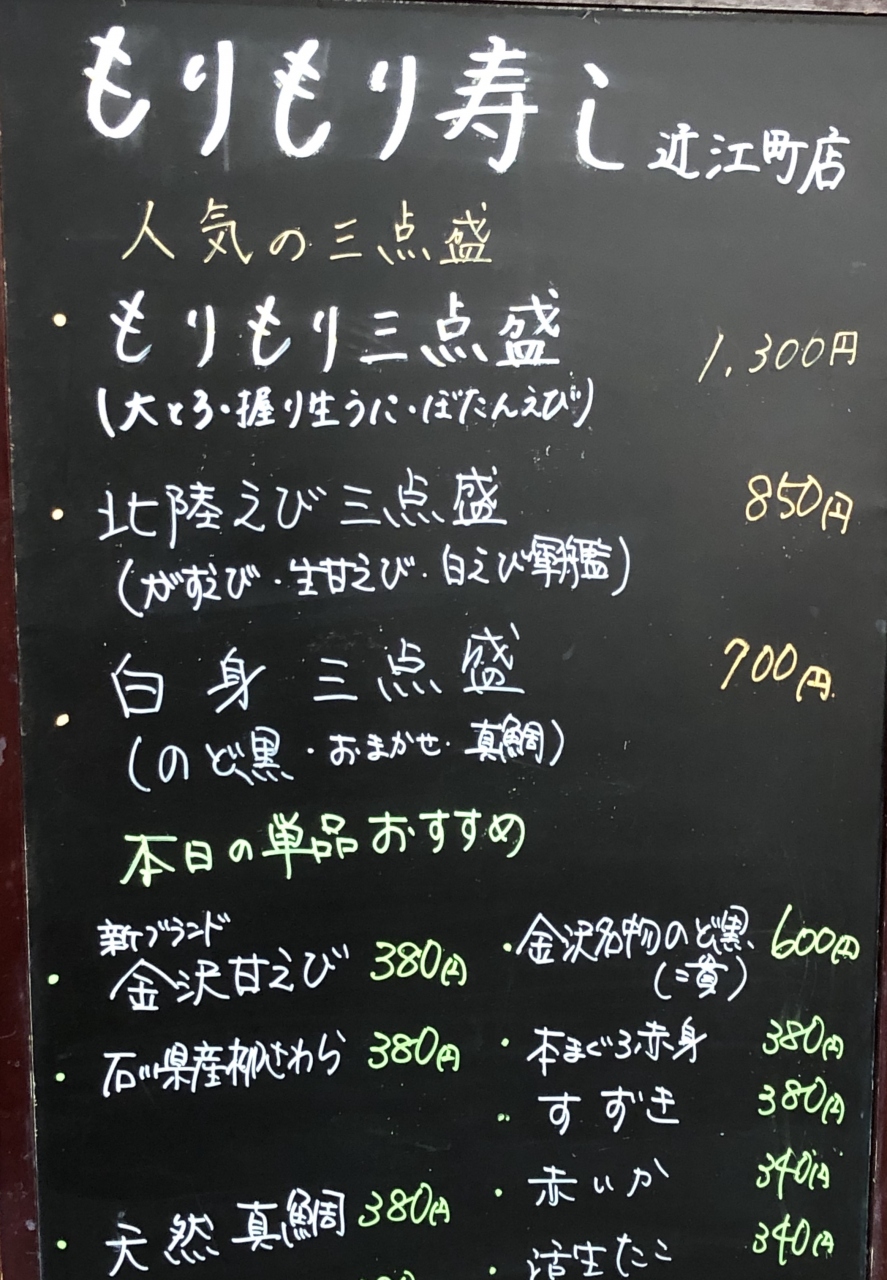 もりもり寿し 近江町店
人気の三点盛
・もりもり三点盛 1,300円
(大とろ・握り生うに・ぼたんえび)
・北陸えび三点盛 850円
(がすえび・生甘えび・白えび軍艦)
・白身三点盛 700円
(のど黒・おまかせ・真鯛)
本日の単品おすすめ
新ブランド
・金沢甘えび 380円
・石川県産柳さわら 380円
・天然真鯛 380円
・金沢名物のど黒 600円
(二貫)
・本まぐろ赤身 380円
・すずき 380円
・赤いか 340円
・活生たこ 340円